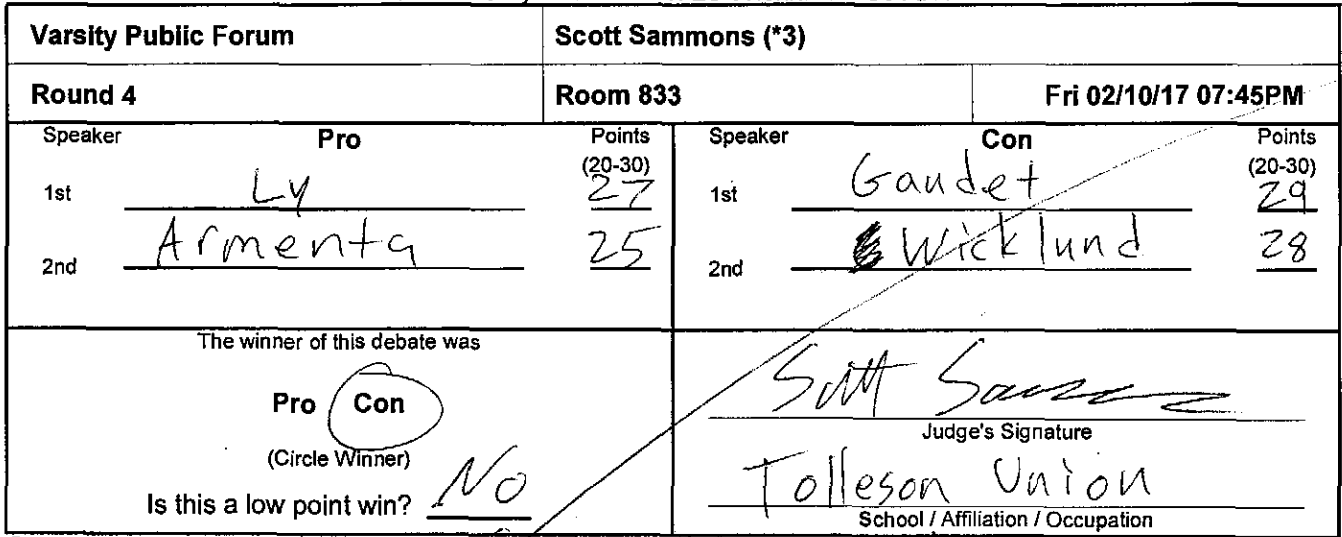 Varsity Public Forum
Scott Sammons (*3)
Round 4
Room 833
Fri 02/10/17 07:45PM
Speaker Pro Points
(20-30)
1st Ly 27
2nd Armenta 25
Speaker Con Points
(20-30)
1st Gaudet 29
2nd Wicklund 28
The winner of this debate was
Pro Con
(Circle Winner)
Is this a low point win? No
Scott Sammons
Judge's Signature
Tolleson Union
School / Affiliation / Occupation